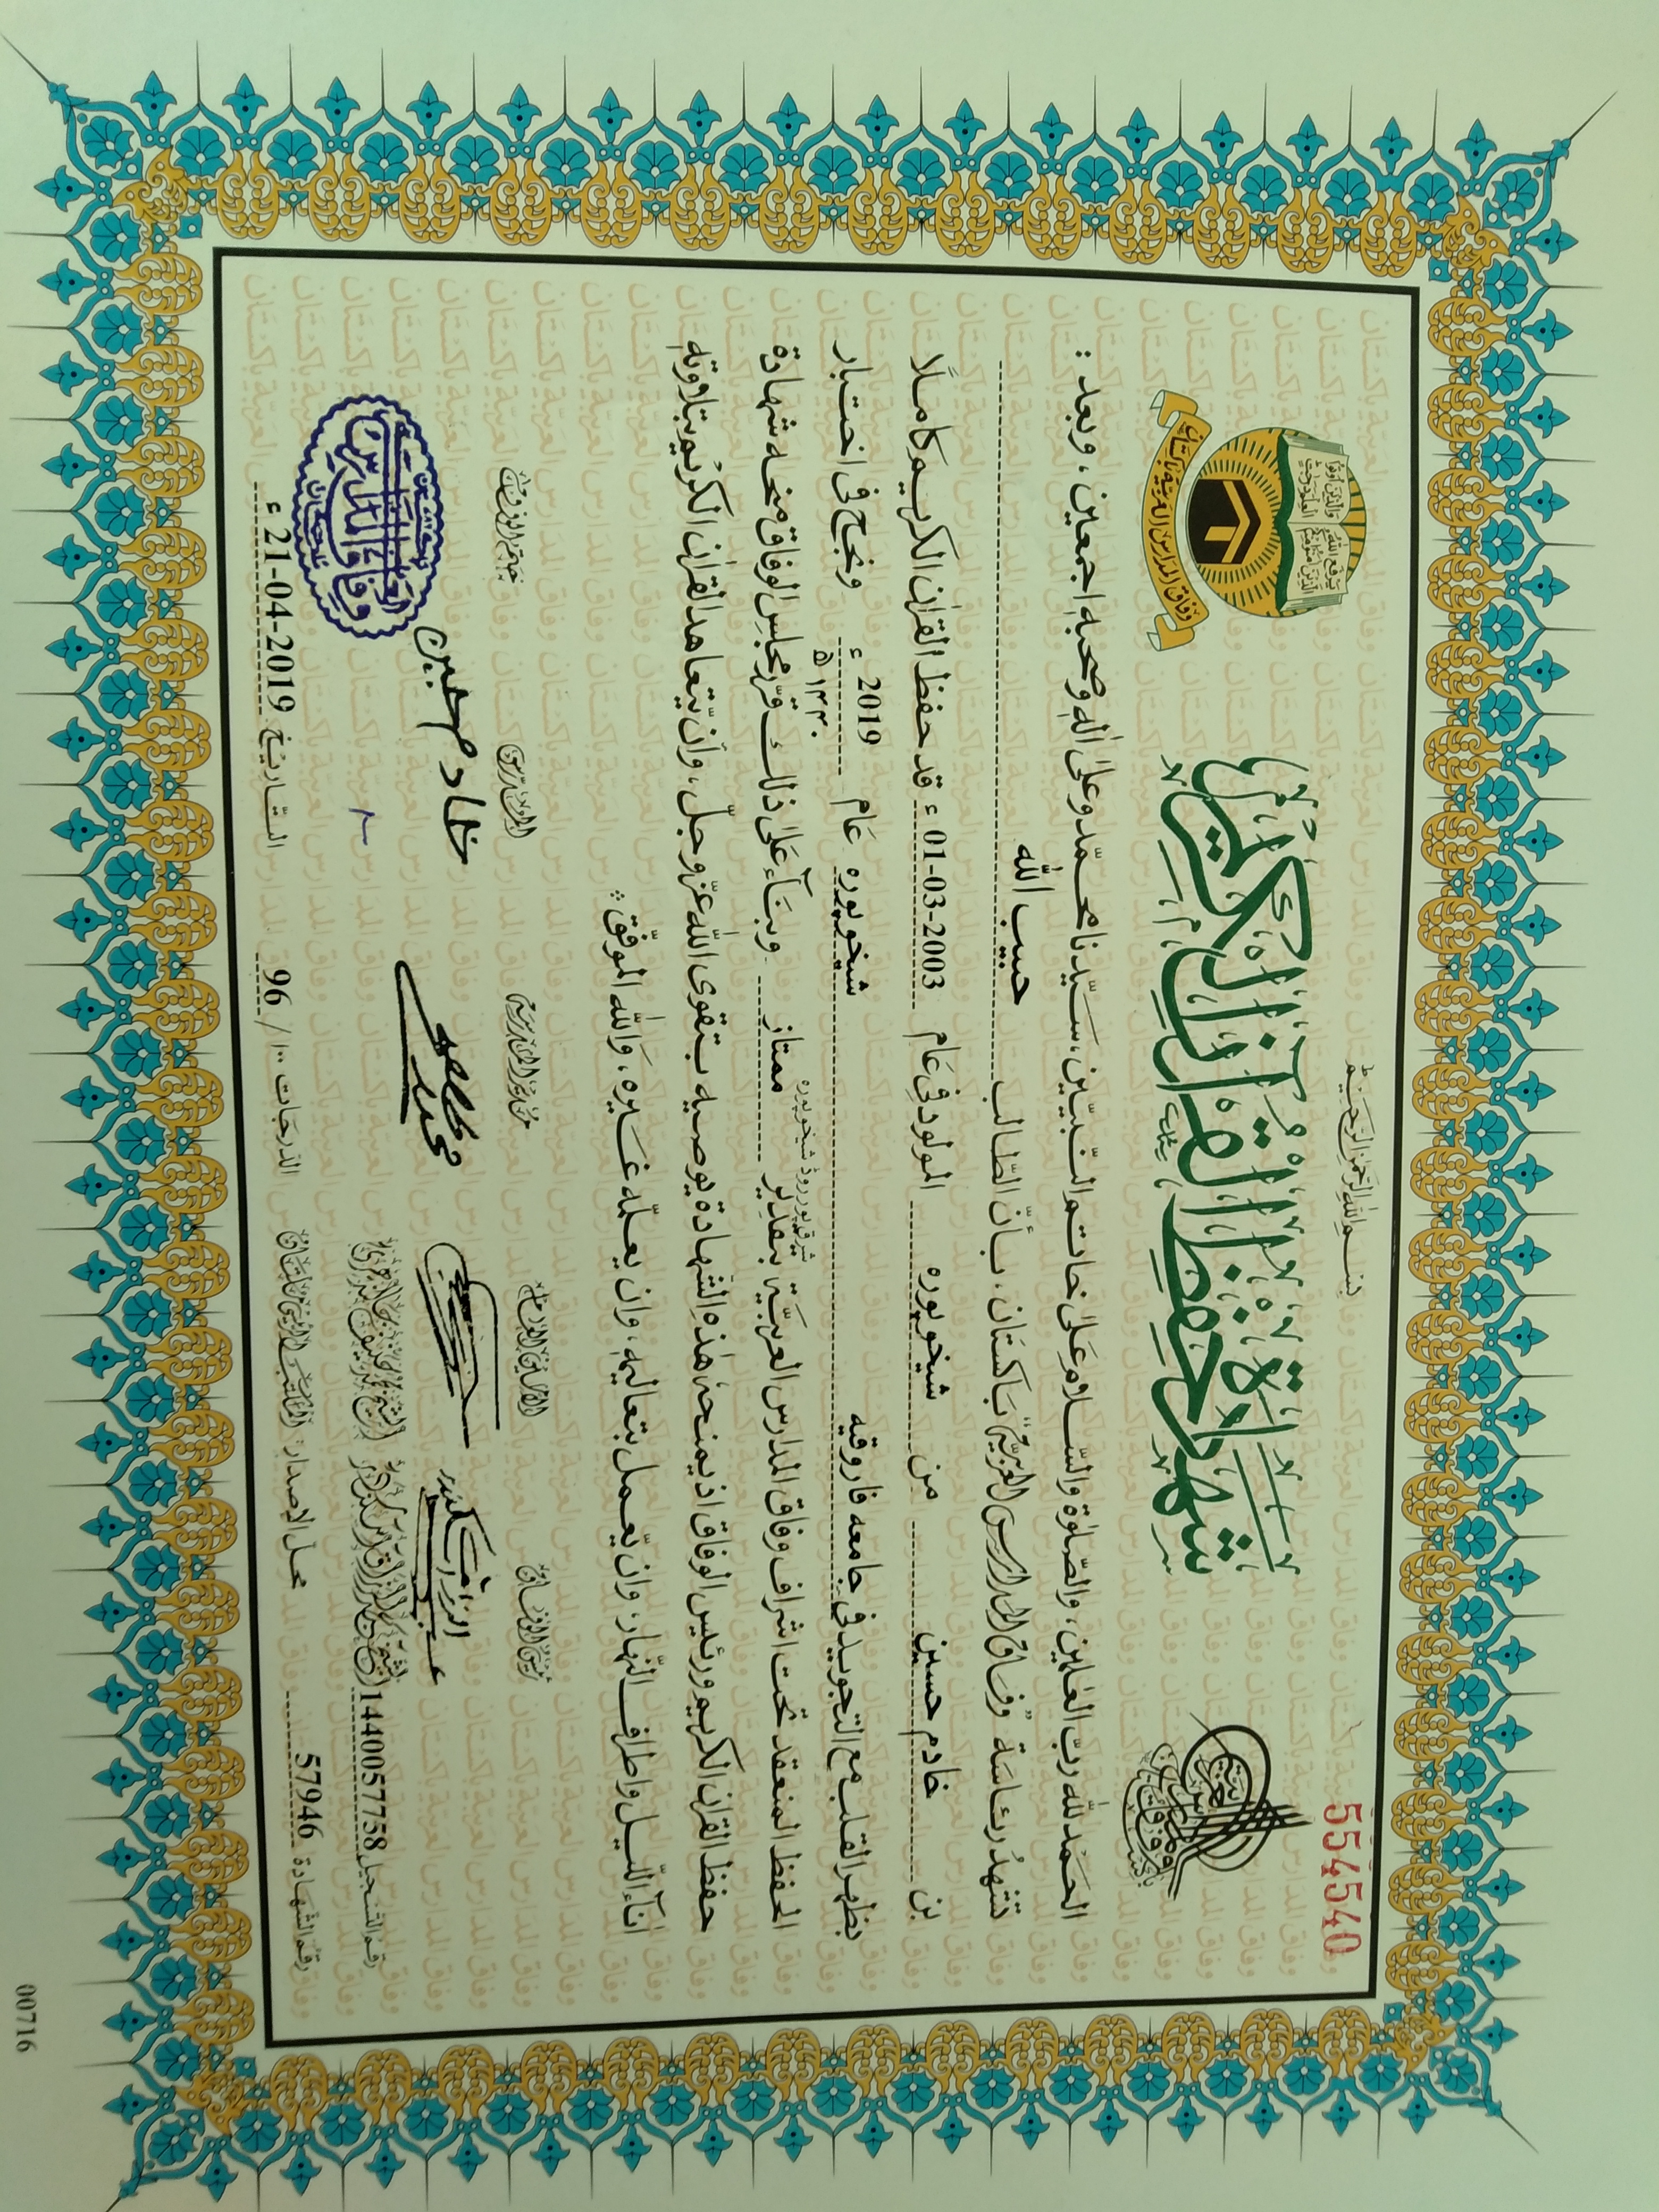 554540
بسم الله الرحمن الرحيم
شهادة حفظ القرآن الكريم
وفاق المدارس العربية پاکستان
الحمد لله ربّ العٰلمين، والصّلوٰة والسّلام علیٰ خاتم النّبيّين، سيّدنا محمّد وعلیٰ اٰله وصحبه اجمعين، وبعد:
تشهد رئاسة وفاق المدارس العربية باكستان، بأنّ الطّالب حبيب الله
بن خادم حسين من شيخوپوره المولود في عام 01-03-2003 ء قد حفظ القراٰن الكريم كاملاً
بظهر القلب مع التجويد في جامعه فاروقيه شيخوپوره عام 2019 ء ونجح في اختبار
شرقپور روڈ شيخوپوره ١٤٤٠ ھ
الحفظ المنعقد تحت اشراف وفاق المدارس العربيّة بتقدير ممتاز وبناءً علیٰ ذلك قرّر مجلس الوفاق منحه شهادة
حفظ القراٰن الكريم ورئيس الوفاق اذ يمنحه هٰذه الشّهادة يوصيه بتقوى الله عزّ وجلّ، وأن يتعاهد القراٰن الكريم بتلاوته
اٰناء اللّيل واطراف النّهار، وان يعمل بتعاليمه، وان يعلّمه غيره، والله الموفّق
رئيس الوفاق الامين العام المدرّس ختم الوفاق
خادم حسين
رقم التسجيل 1440057758
رقم الشهادة 57946 محلّ الاصدار: المكتب الرئيسي ملتان الدّرجات 96 / ١٠٠ التّاريخ 21-04-2019 ء
00716